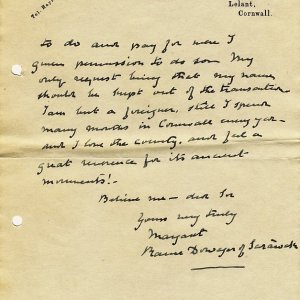 Tel. Hay
Lelant,
Cornwall.
to do and pay for were I
given permission to do so. My
only request being that my name
should be kept out of the transaction
I am but a foreigner, still I spend
many months in Cornwall every year
and I love the County, and feel a
great reverence for its ancient
monuments!-
Believe me - dear Sir
Yours very truly
Margaret
Ranee Dowager of Sarawak